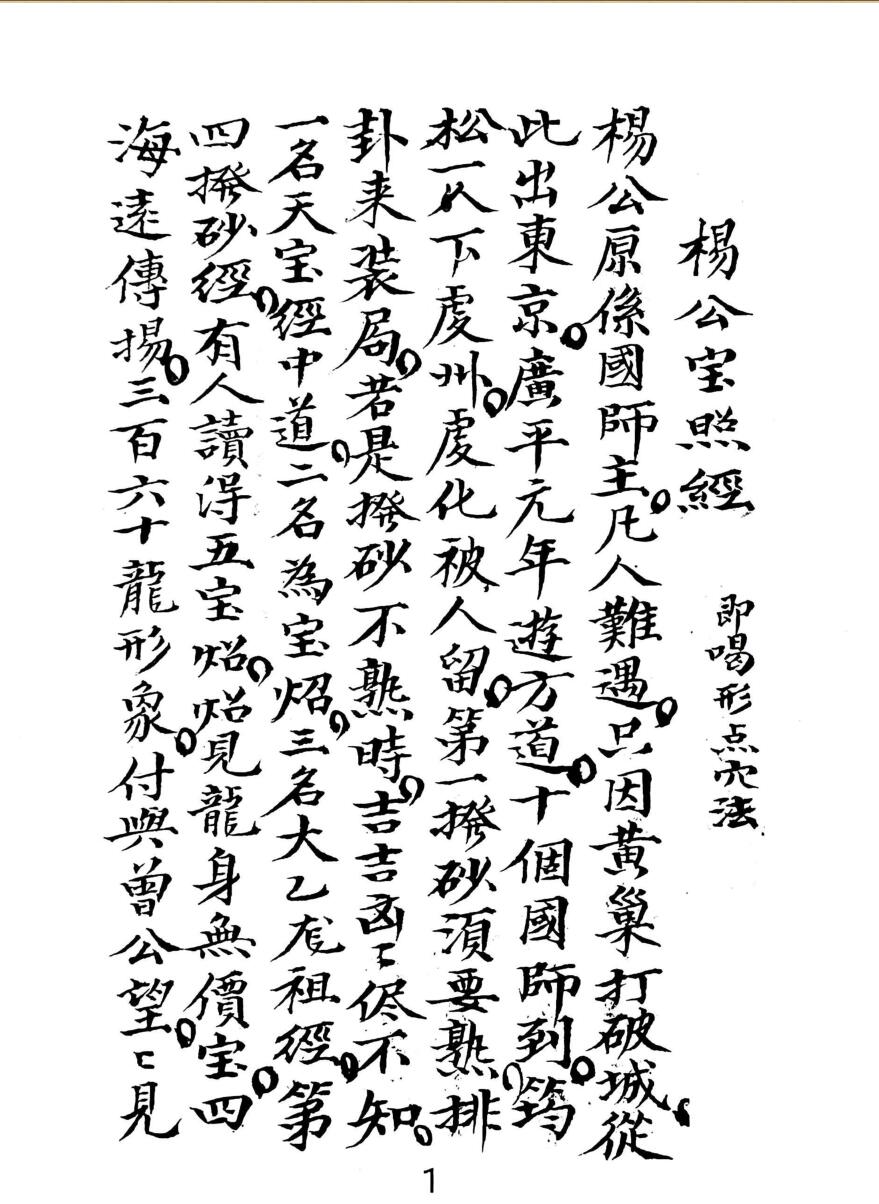 楊公宝照經
即喝形点穴法
楊公原係國師主。凡人難遇。只因黃巢打破城。從
此出東京。廣平元年遊方道。十個國師到。筠
松一以下虔州。虔化被人留。第一撥砂須要熟。排
卦来装局。若是撥砂不熟時。吉吉凶〻侭不知。
一名天宝經中道。二名為宝炤。三名大乙龙祖經。第
四撥砂經。有人讀淂五宝炤。炤見龍身無價宝。四
海遠傳揚。三百六十龍形象。付與曾公望。〻見
1